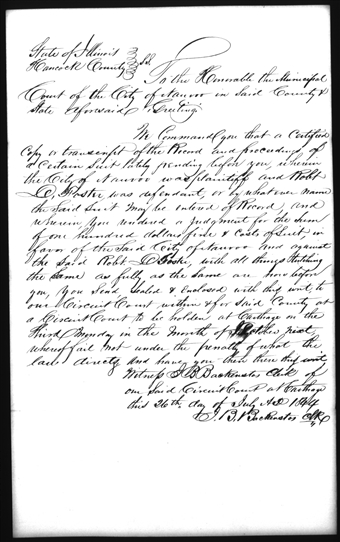 State of Illinois
Hancock County } Sct
To the Honorable the Municipal
Court of the City of Nauvoo in said County &
State aforesaid Greeting
We Command you that a Certified
Copy or transcript of the Record and proceedings of
a Certain Suit lately pending before you, wherein
the City of Nauvoo was plaintiff and Robt
D. Foster was defendant, or by whatever name
the Said Suit may be entered of Record, and
wherein you rendered a judgment for the sum
of one hundred dollars fine & Costs of Suit, in
favor of the Said City of Nauvoo and against
the Said Robt D. Foster, with all things touching
the same as fully as the same are now before
you, you Send Sealed & Enclosed with this writ, to
our Circuit Court within & for Said County at
a Circuit Court to be holden at Carthage on the
third Monday in the month of October next,
whereof fail not under the penalty of what the
law directs and have you then there this writ
Witness J B Backenstos Clk of
our Said Circuit Court at Carthage
this 26th day of July AD 1844
J. B. Backenstos Clk